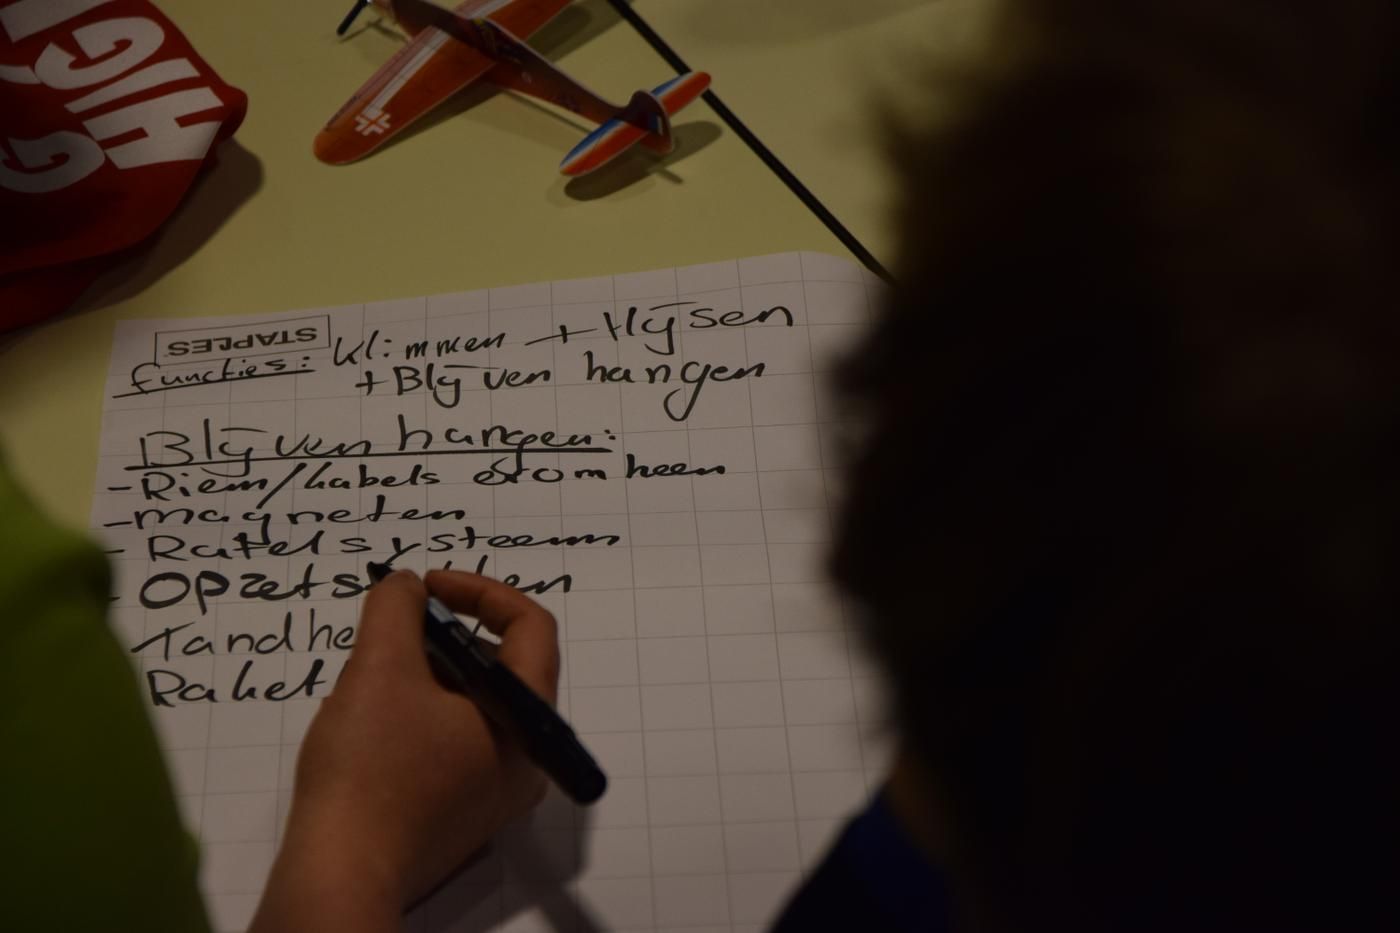 HIGH
G
STAPLES
functies: klimmen + Hijsen
+ Blijven hangen
Blijven hangen:
- Riem/kabels erom heen
- magneten
- Ratelsysteem
- Opzet
Tandhe
Raket